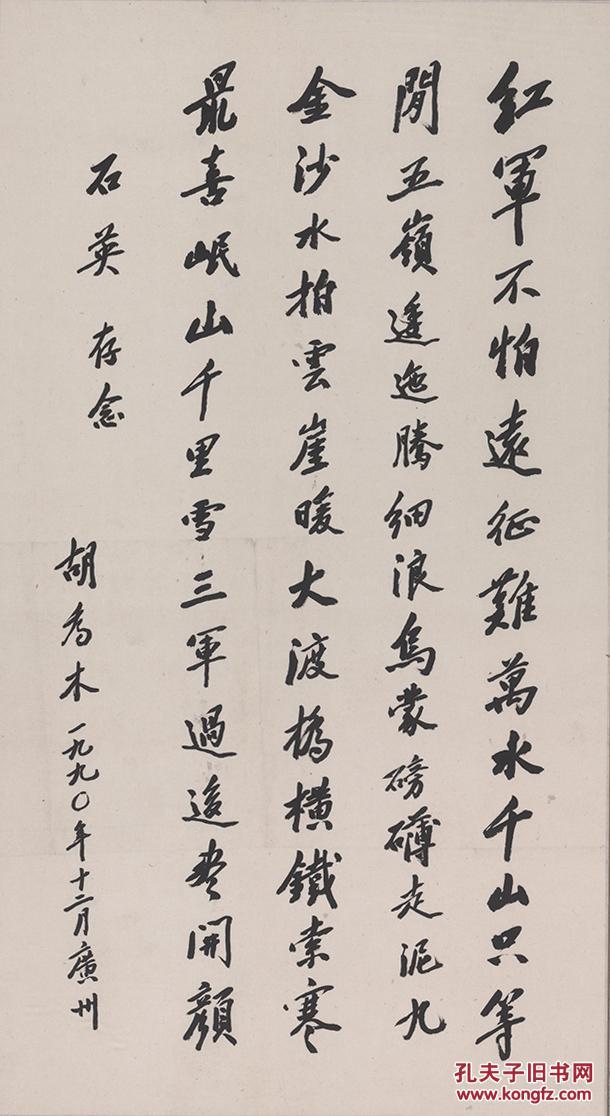 红軍不怕遠征難萬水千山只等
閒五嶺逶迤騰细浪烏蒙磅礴走泥丸
金沙水拍雲崖暖大渡橋横鐵索寒
最喜岷山千里雪三軍過後尽開顔
石英 存念
胡乔木一九九〇年十二月廣州
孔夫子旧书网
www.kongfz.com